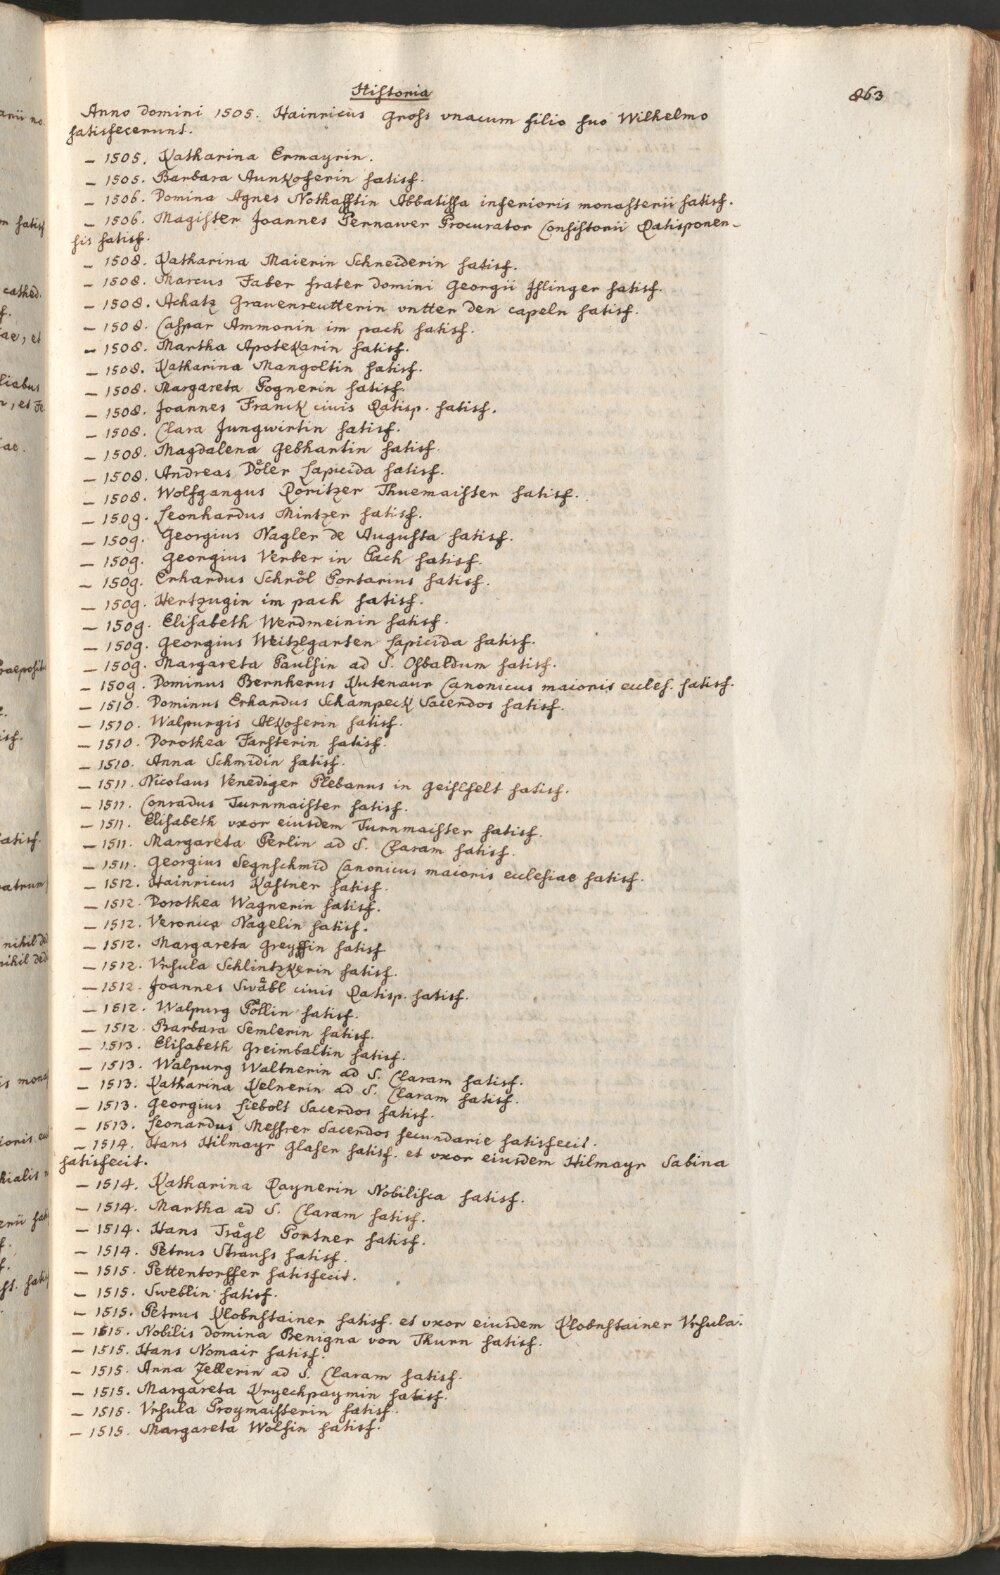 Historia
863
Anno domini 1505. Hainricus Gross vnacum filio suo Wilhelmo
satisfecerunt.
– 1505. Katharina Ermayrin.
– 1505. Barbara Aunkoferin satisf.
– 1506. Domina Agnes Nothafftin Abbatissa inferioris monasterii satisf.
– 1506. Magister Joannes Pernawer Procurator Consistorii Ratisponen-
sis satisf.
– 1508. Katharina Maierin Schneiderin satisf.
– 1508. Marcus Faber frater domini Georgii Islinger satisf.
– 1508. Achatz Grauenreutterin vntter den capeln satisf.
– 1508. Caspar Ammonin im pach satisf.
– 1508. Martha Apotekarin satisf.
– 1508. Katharina Mangoltin satisf.
– 1508. Margareta Pognerin satisf.
– 1508. Joannes Franck ciuis Ratisp. satisf.
– 1508. Clara Jungwirtin satisf.
– 1508. Magdalena Gebhartin satisf.
– 1508. Andreas Döler Lapicida satisf.
– 1508. Wolfgangus Roritzer Thuemaister satisf.
– 1509. Leonhardus Mintzer satisf.
– 1509. Georgius Nagler de Augusta satisf.
– 1509. Georgius Verber in Pach satisf.
– 1509. Erhardus Schröl Portarius satisf.
– 1509. Hertzugin im pach satisf.
– 1509. Elisabeth Werdmeinin satisf.
– 1509. Georgius Weitzlgarten Lapicida satisf.
– 1509. Margareta Paulsin ad S. Osbaldum satisf.
– 1509. Dominus Bernherus Kutenaur Canonicus maioris eccles. satisf.
– 1510. Dominus Erhardus Schampeck Sacerdos satisf.
– 1510. Walpurgis Alkoferin satisf.
– 1510. Dorothea Farsterin satisf.
– 1510. Anna Schmidin satisf.
– 1511. Nicolaus Venediger Plebanus in Geislhelt satisf.
– 1511. Conradus Turnmaister satisf.
– 1511. Elisabeth vxor eiusdem Turnmaister satisf.
– 1511. Margareta Perlin ad S. Claram satisf.
– 1511. Georgius Segnschmid Canonicus maioris ecclesiae satisf.
– 1512. Hainricus Kastner satisf.
– 1512. Dorothea Wagnerin satisf.
– 1512. Veronica Nagelin satisf.
– 1512. Margareta Greyffin satisf
– 1512. Vrsula Schlintzkerin satisf.
– 1512. Joannes Swäbl ciuis Ratisp. satisf.
– 1512. Walpurg Pöllin satisf.
– 1512. Barbara Semlerin satisf.
– 1513. Elisabeth Greimbaltin satisf.
– 1513. Walpurg Waltnerin ad S. Claram satisf.
– 1513. Katharina Kelnerin ad S. Claram satisf.
– 1513. Georgius Liebolt Sacerdos satisf.
– 1513. Leonardus Messrer Sacerdos secundarie satisfecit.
– 1514. Hans Hilmayr Glaser satisf. et vxor eiusdem Hilmayr Sabina
satisfecit.
– 1514. Katharina Raynerin Nobilissa satisf.
– 1514. Martha ad S. Claram satisf.
– 1514. Hans Trägl Portner satisf.
– 1514. Petrus Strauss satisf.
– 1515. Pettentorffer satisfecit.
– 1515. Sweblin satisf.
– 1515. Petrus Klobnstainer satisf. et vxor eiusdem Klobnstainer Vrsula.
– 1515. Nobilis domina Benigna von Thurn satisf.
– 1515. Hans Nomair satisf.
– 1515. Anna Zellerin ad S. Claram satisf.
– 1515. Margareta Kryechpaymin satisf.
– 1515. Vrsula Proymaisterin satisf.
– 1515. Margareta Wolfin satisf.